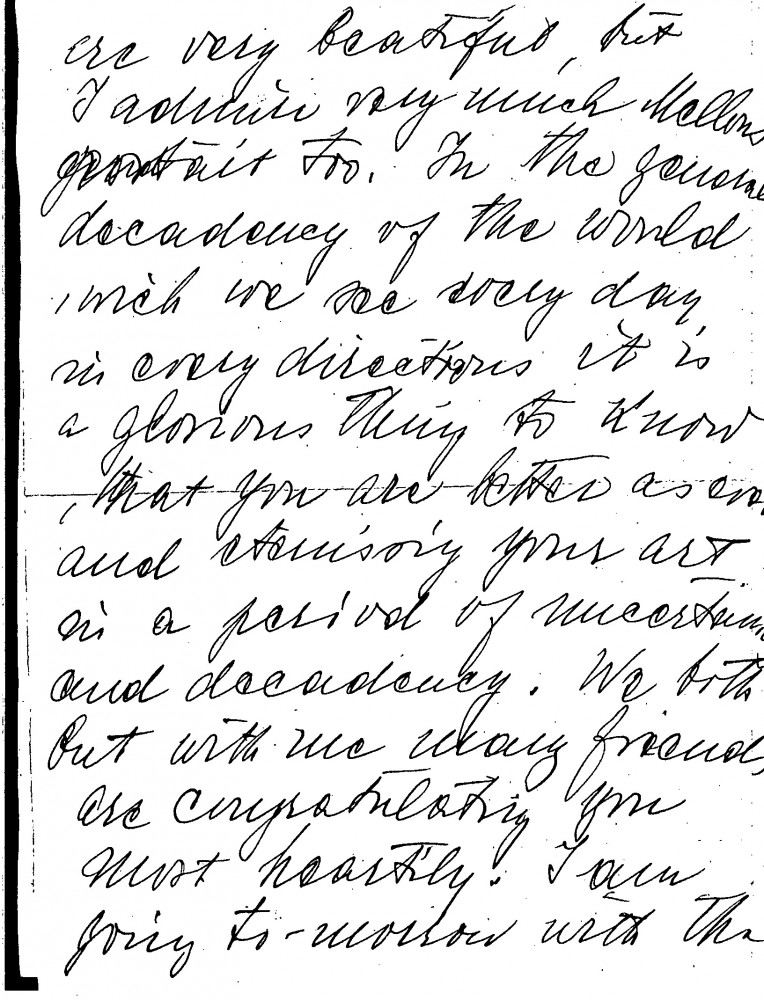 are very beatiful, but
I admire very much Mellons
portrait too. In the general
decadency of the world
wich we see every day
in every directions it is
a glorious thing to know
that you are better as ever
and your art
in a period of
and decadency. We both
but with me many friends
are congratulating you
most heartily. I am
going to-morrow with the